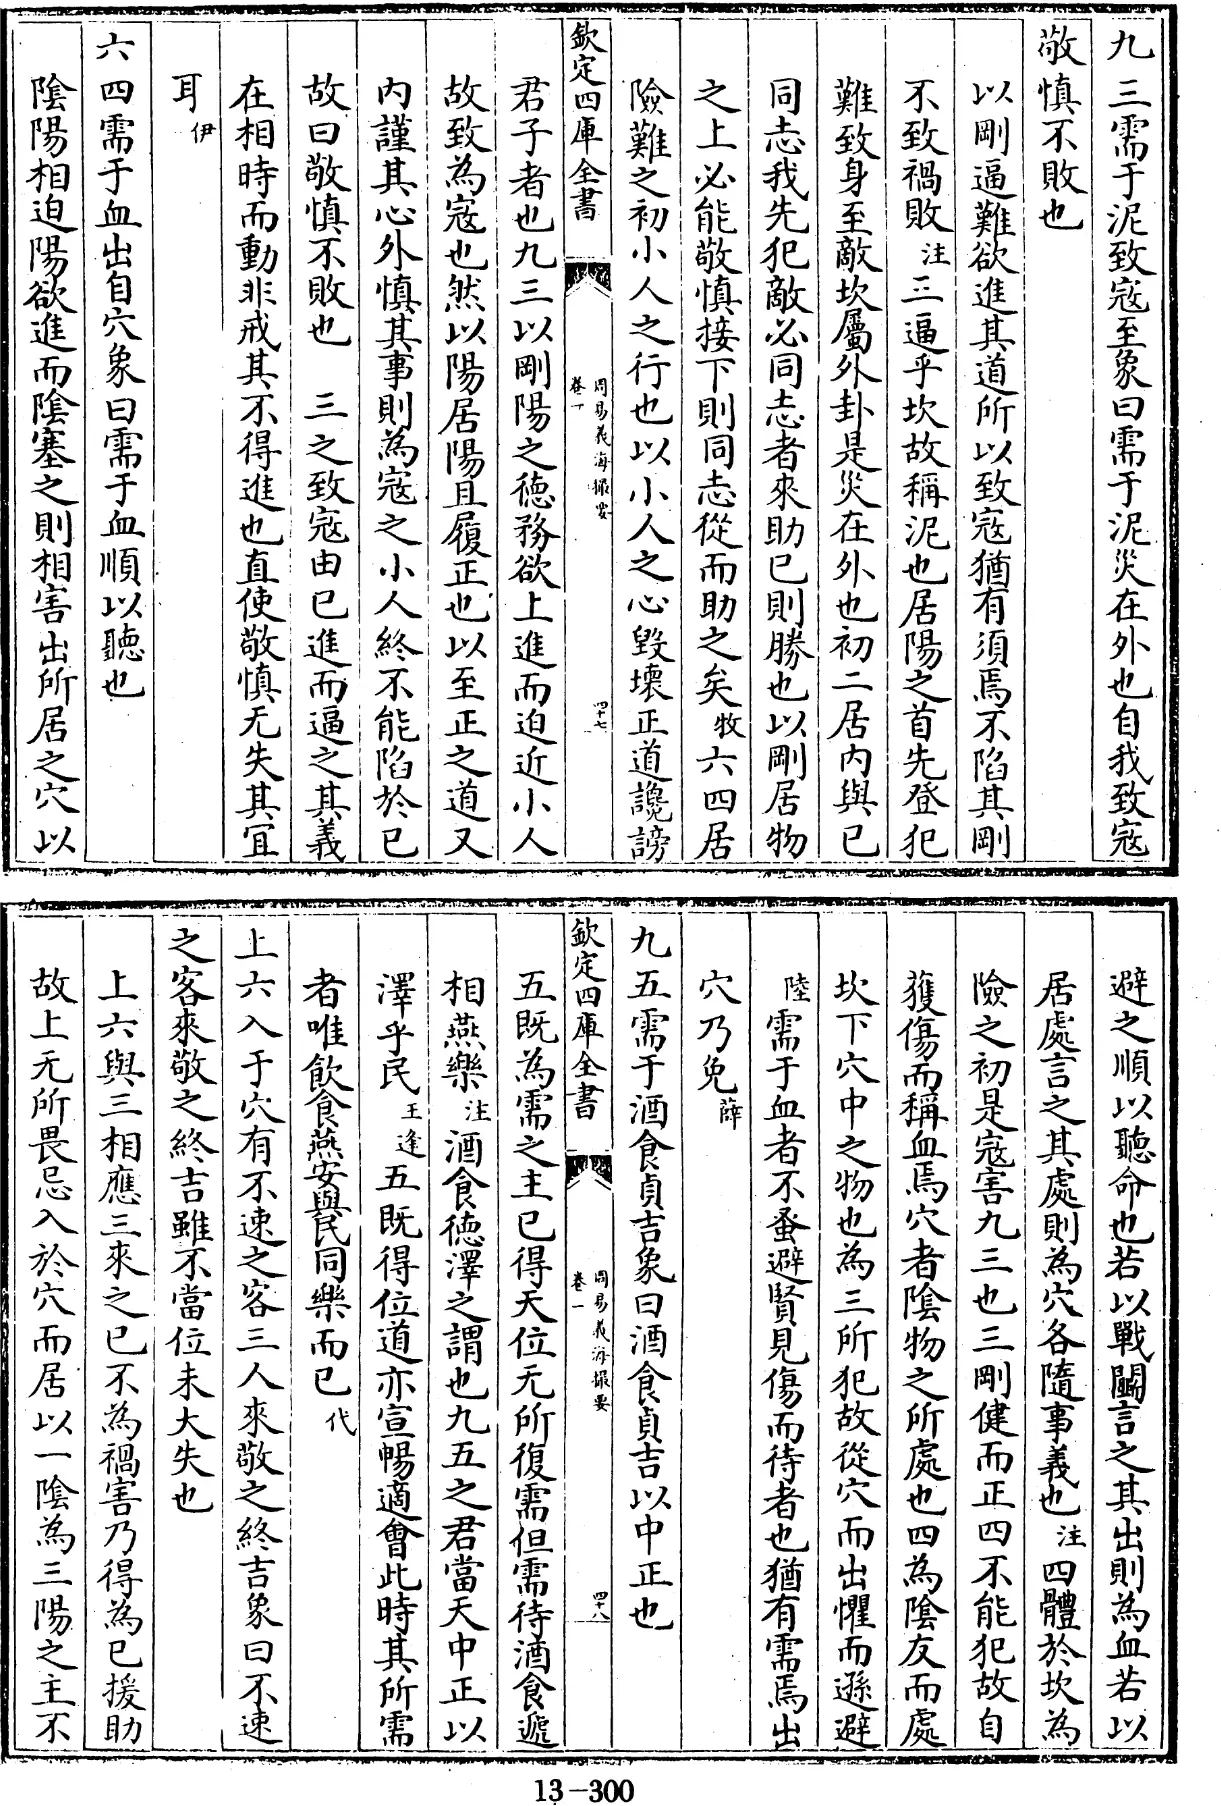 九三需于泥致寇至象曰需于泥災在外也自我致寇
敬慎不敗也
以剛逼難欲進其道所以致寇猶有須焉不陷其剛
不致禍敗注三逼乎坎故稱泥也居陽之首先登犯
難致身至敵坎屬外卦是災在外也初二居内與已
同志我先犯敵必同志者來助已則勝也以剛居物
之上必能敬慎接下則同志從而助之矣牧六四居
險難之初小人之行也以小人之心毀壞正道讒謗
欽定四庫全書
周易義海撮要
卷一
四十七
君子者也九三以剛陽之德務欲上進而迫近小人
故致為寇也然以陽居陽且履正也以至正之道又
内謹其心外慎其事則為寇之小人終不能陷於已
故曰敬慎不敗也 三之致寇由已進而逼之其義
在相時而動非戒其不得進也直使敬慎无失其宜
耳伊
六四需于血出自穴象曰需于血順以聽也
陰陽相迫陽欲進而陰塞之則相害出所居之穴以
避之順以聽命也若以戰鬭言之其出則為血若以
居處言之其處則為穴各隨事義也注四體於坎為
險之初是寇害九三也三剛健而正四不能犯故自
獲傷而稱血焉穴者陰物之所處也四為陰友而處
坎下穴中之物也為三所犯故從穴而出懼而遜避
陸需于血者不蚤避賢見傷而待者也猶有需焉出
穴乃免薛
九五需于酒食貞吉象曰酒食貞吉以中正也
欽定四庫全書
周易義海撮要
卷一
四十八
五既為需之主已得天位无所復需但需待酒食遞
相燕樂注酒食德澤之謂也九五之君當天中正以
澤乎民王逢五既得位道亦宣暢適會此時其所需
者唯飲食燕安與民同樂而已代
上六入于穴有不速之客三人來敬之終吉象曰不速
之客來敬之終吉雖不當位未大失也
上六與三相應三來之已不為禍害乃得為已援助
故上无所畏忌入於穴而居以一陰為三陽之主不
13-300